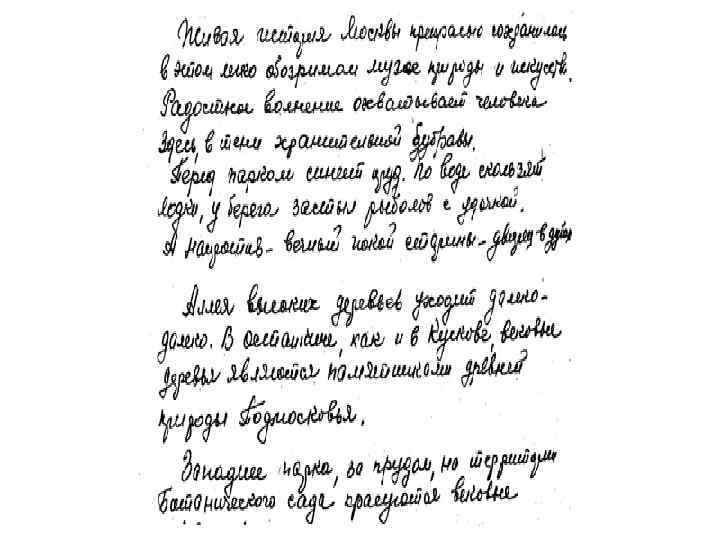 Живая история Москвы прекрасно сохранилась
в этом легко обозримом музее природы и искусств.
Радостное волнение охватывает человека
здесь, в тени хранительной дубравы.
Перед парком синеет пруд. По воде скользят
лодки, у берега застыл рыболов с удочкой.
А напротив - вечный покой старины -
Аллея высоких деревьев уходит далеко-
далеко. В Останкине, как и в Кускове, вековые
деревья являются памятниками древней
природы Подмосковья.
Западнее парка, за прудом, на территории
Ботанического сада красуются вековые